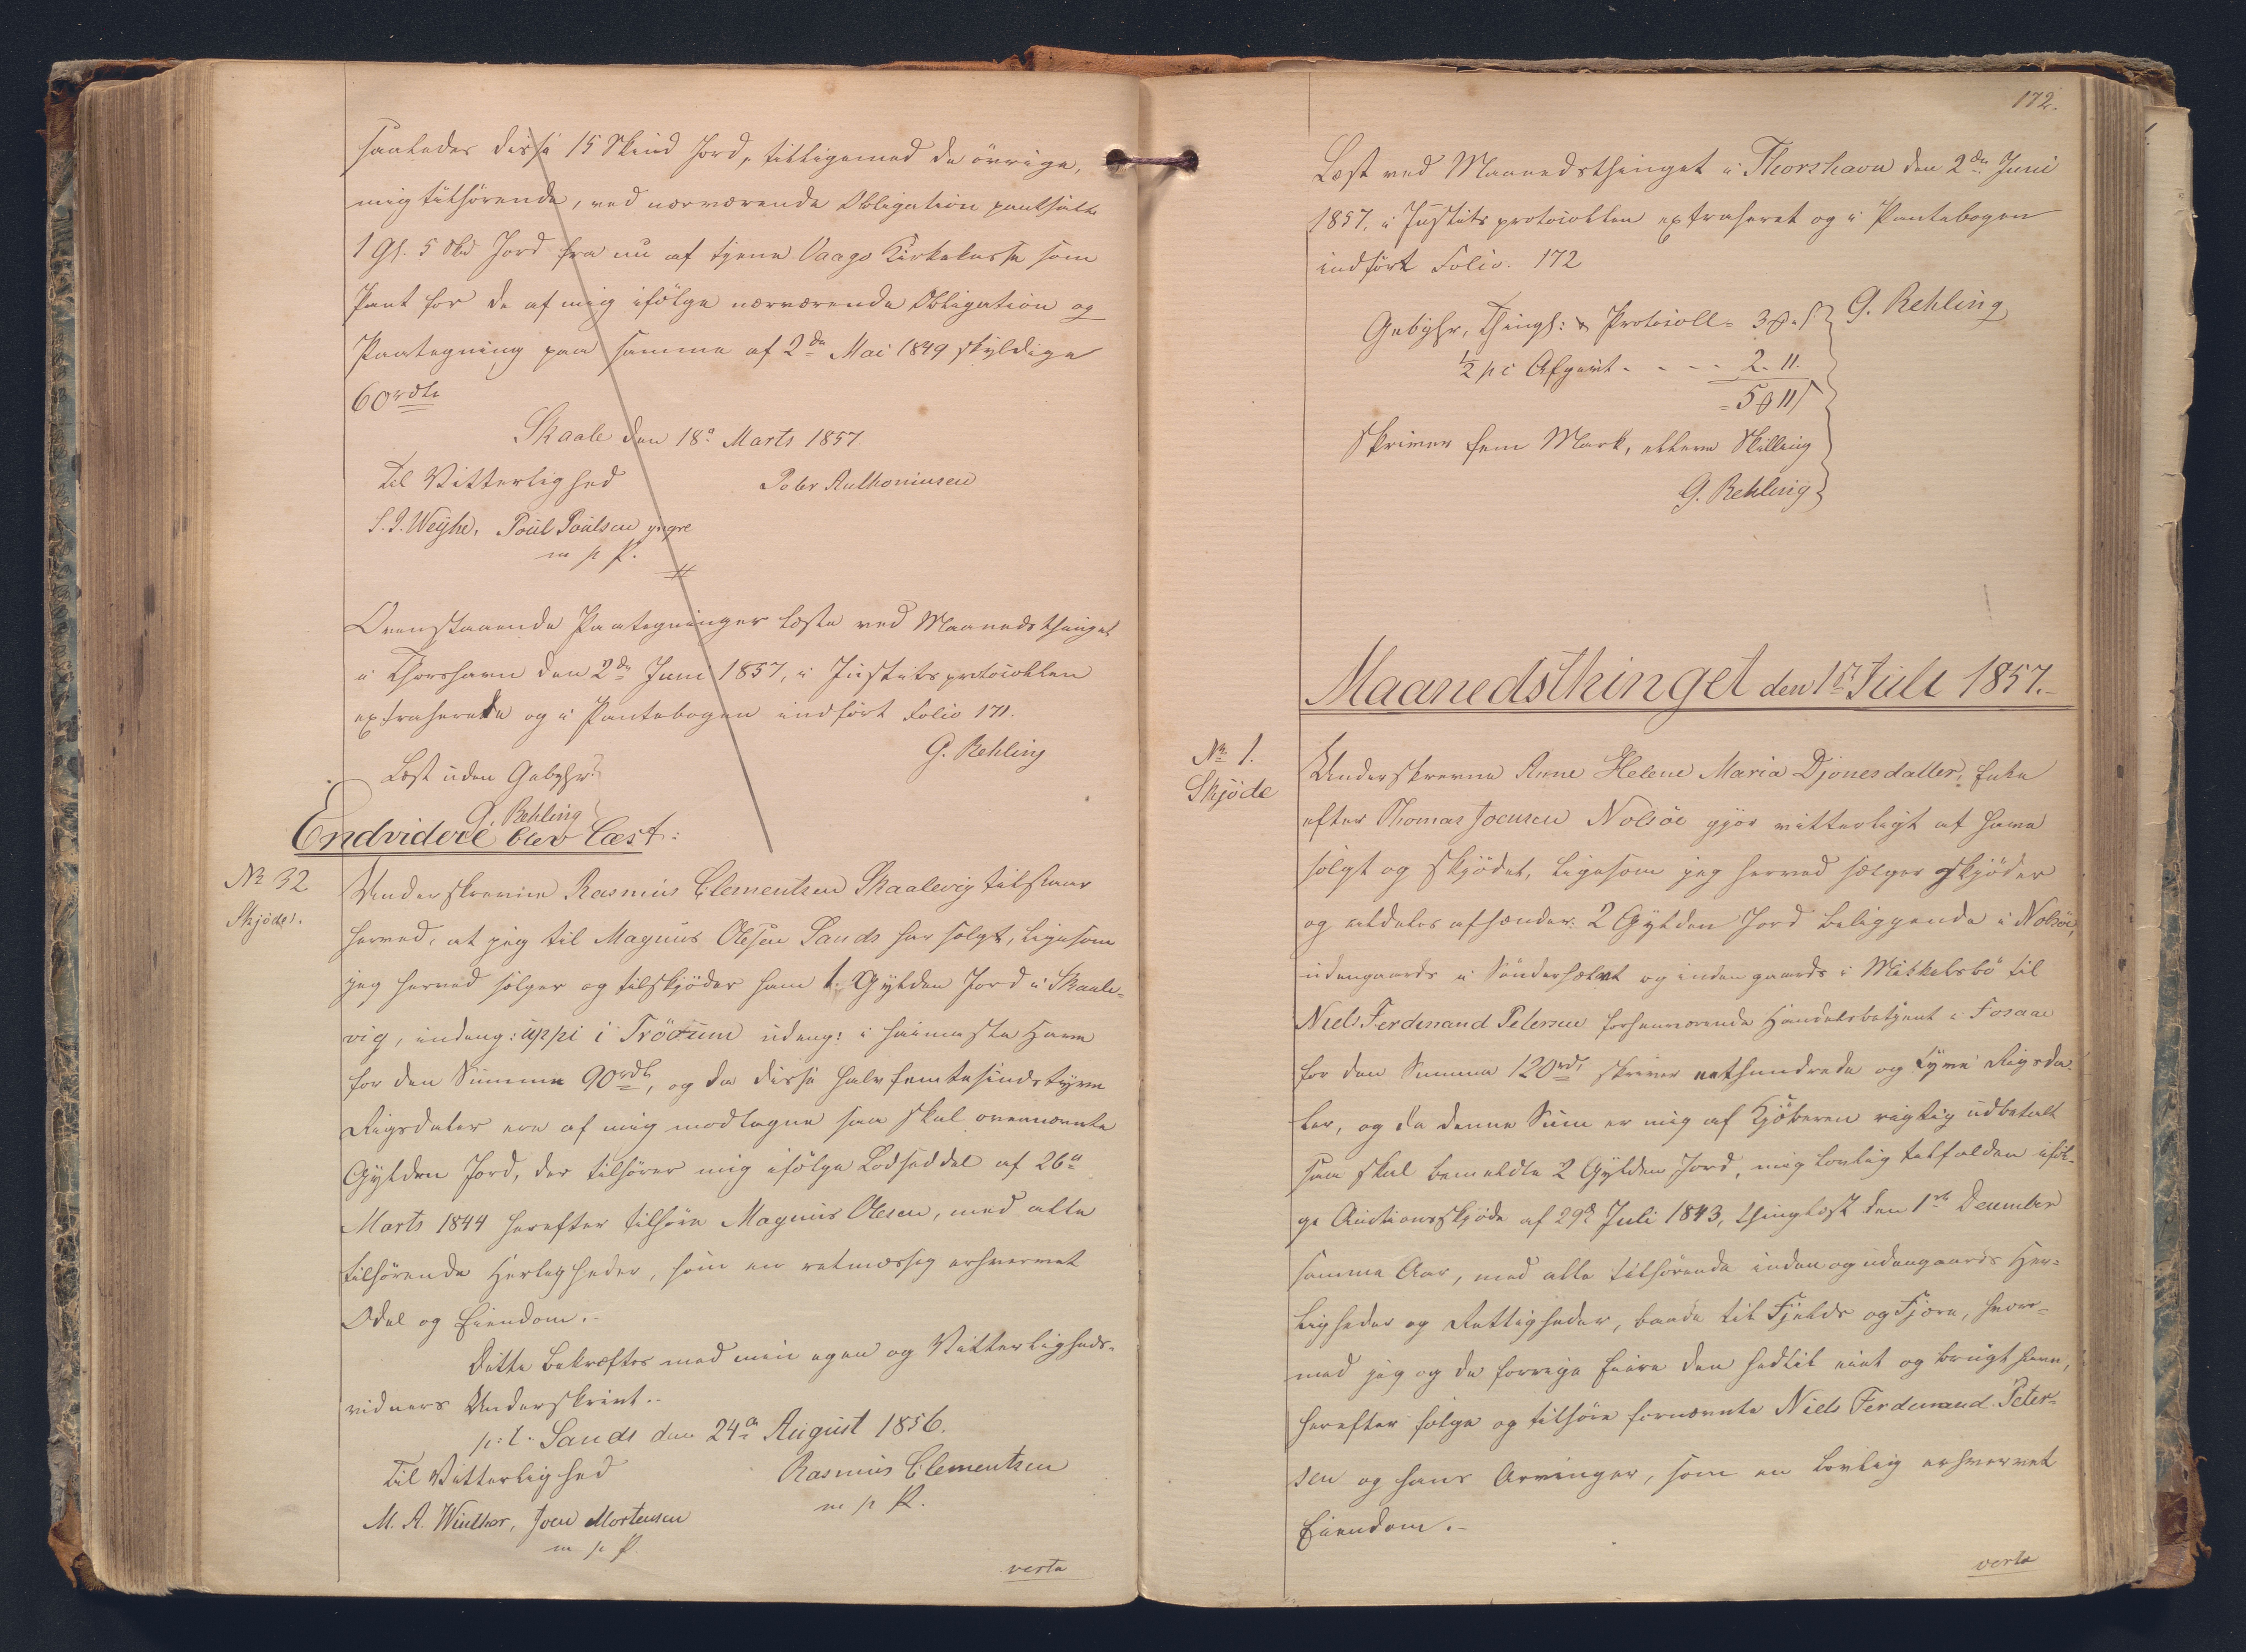 saaledes disse 15 Skind Jord, tilligemed de övrige,
mig tilhörende, ved nærværende Obligation pantsatte
1 Gl. 5 Skd Jord fra nu af tjene Vaagö Kirkekasse som
Pant for de af mig ifölge nærværende Obligation og
Paategning paa samme af 2den Mai 1849 skyldige
60 rdlr
Skaale den 18de Marts 1857.
Til Vitterlighed Peter Anthoniusen
S. J. Weyhe, Poul Poulsen yngre
m p P.
Ovenstaaende Paategninger læste ved Maanedsthinget
i Thorshavn den 2den Juni 1857, i Justitsprotocollen
extraherede og i Pantebogen indfört Folio 171.
G. Rehling
Læst uden Gebyhr
G. Rehling
Endvidere blev læst:
No 32
Skjöde.
Underskrevne Rasmus Clementsen Skaalevig tilstaar
herved, at jeg til Magnus Olesen Sands har solgt, ligesom
jeg herved sælger og tilskjöder ham 1. Gylden Jord i Skaale-
vig, indeng: uppi i Tröðum udeng: i heimasta Have
for den Summa 90 rdlr, og da disse halvfemtesindstyve
Rigsdaler ere af mig modtagne saa skal ovennævnte
Gylden Jord, der tilhörer mig ifölge Lodseddel af 26de
Marts 1844 herefter tilhöre Magnus Olesen, med alle
tilhörende Herligheder, som en retmæssig erhvervet
Odel og Eiendom.-
Dette bekræftes med min egen og Vitterligheds-
vidners Underskrivt.-
p: t. Sands den 24de August 1856.
Til Vitterlighed Rasmus Clementsen
m p P.
M. A. Winther, Joen Mortensen
m p P.
verte
172.
Læst ved Maanedsthinget i Thorshavn den 2den Juni
1857, i Justitsprotocollen extraheret og i Pantebogen
indfört Folio. 172
G. Rehling
Gebyhr, Thingl: & Protocoll- 3 . ß
½ pc Afgivt - - - - 2. 11.
5 11 ß
skriver fem Mark, elleve Skilling
G. Rehling
Maanedsthinget den 1ste Juli 1857.-
No 1.
Skjöde
Underskrevne Anne Helene Maria Djonesdatter, Enke
efter Thomas Joensen Nolsöe gjör vitterligt at have
solgt og skjödet, ligesom jeg herved sælger skjöder
og aldeles afhænder: 2 Gylden Jord beliggende i Nolsöe,
udengaards i Sönderhælvt og indengaards i Mikkelsbö til
Niels Ferdinand Petersen forhenværende Handelsbetjent i Fosaae
for den Summa 120 rd, skriver eethundrede og tyve Rigsda-
ler, og da denne Sum er mig af Kjöberen rigtig udbetalt
saa skal bemeldte 2 Gylden Jord, mig lovlig tilfalden iföl-
ge Auctionsskjöde af 29de Juli 1843, thinglæst den 1ste December
samme Aar, med alle tilhörende inden og udengaards Her-
ligheder og Rettigheder, baade til Fjelds og Fjære, hvor-
med jeg og de forrige Eiere den hedtil eiet og brugt have,
herefter fölge og tilhöre fornævnte Niels Ferdinand Peter-
sen og hans Arvinger, som en lovlig erhvervet
Eiendom.-
verte